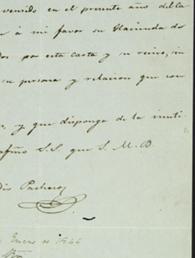 venido en el presente año de la
á mi favor su Hacienda de
dos por esta Carta y su reino, in
su persona y relacion que con
y que disponga de la inuti
afmo S.S. que S. M. B.
Pacheco
Enero de 1844